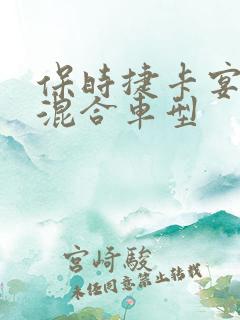 保時捷卡宴
混合車型
宮崎駿
未經同意禁止轉載